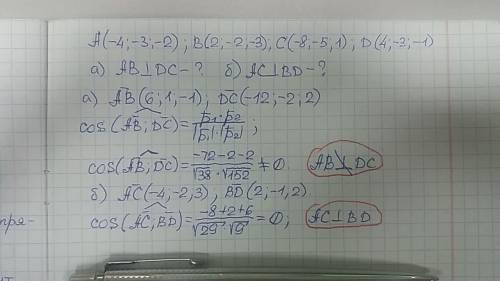 A(-4;-3;-2); B(2;-2;-3); C(-8;-5;1); D(4;-3;-1)
а) AB⊥DC-? б) AC⊥BD-?
а) AB(6;1;-1); DC(-12;-2;2)
cos(AB;DC)=p₁·p₂/|p₁|·|p₂|;
cos(AB;DC)=-72-2-2/√38·√152≠0. AB⊥̸DC
б) AC(-4,-2,3), BD(2,-1,2)
пря-
cos(AC;BD)=-8+2+6/√29·√9=0; AC⊥BD